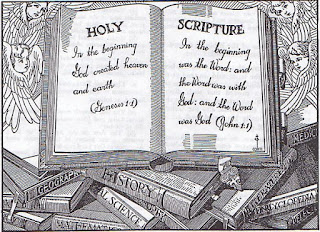 HOLY
In the beginning
God created heaven
and earth
(Genesis 1:1)
SCRIPTURE
In the beginning
was the Word: and
the Word was with
God: and the Word
was God (John 1:1)
GEOGRAPHY
HISTORY
SCIENCE
MATHEMATICS
ENCYCLOPEDIA